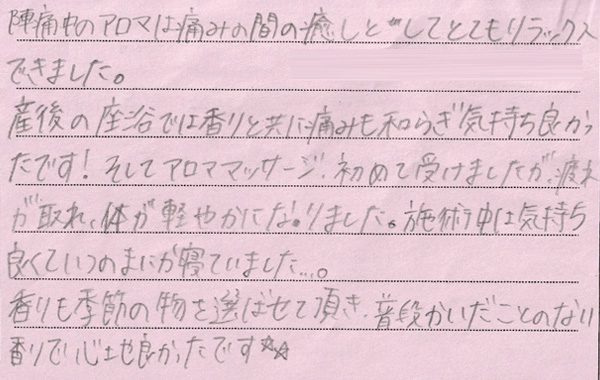 陣痛中のアロマは痛みの間の癒しとしてとてもリラックス
できました。
産後の座浴では香りと共に痛みも和らぎ気持ち良かっ
たです！そしてアロママッサージ、初めて受けましたが、疲れ
が取れ、体が軽やかになりました。施術中は気持ち
良くていつのまにか寝ていました…。
香りも季節の物を選ばせて頂き、普段かいだことのない
香りで心地良かったです☆☆